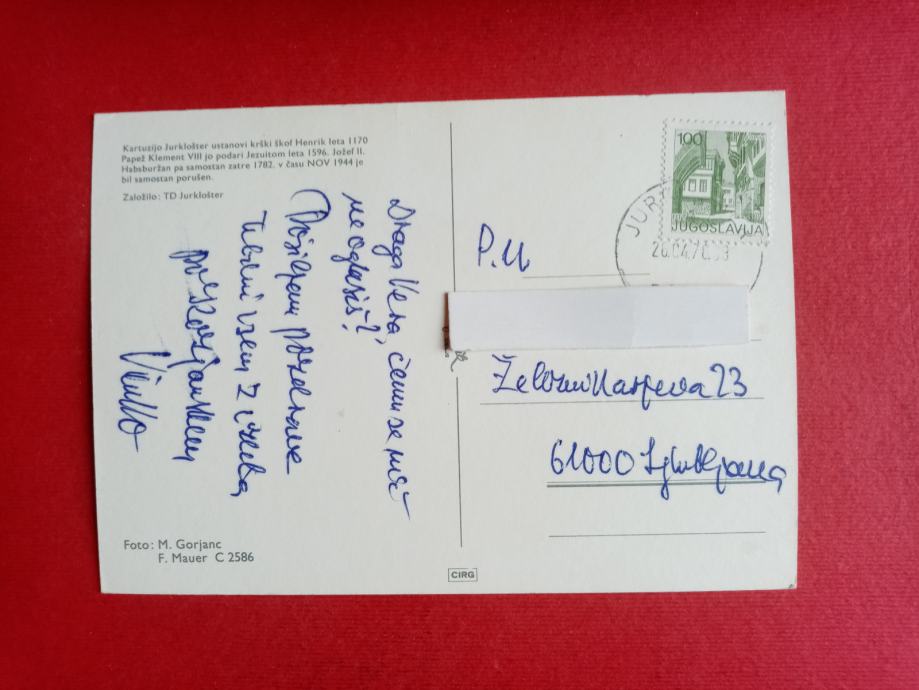 Kartuzijo Jurklošter ustanovi krški škof Henrik leta 1170
Papež Klement VIII jo podari Jezuitom leta 1596. Jožef II.
Habsburžan pa samostan zatre 1782. v času NOV 1944 je
bil samostan porušen.
Založilo: TD Jurklošter
Draga Vera, čemu se nič
ne oglasiš?
Pošiljam pozdrave
Tebi in vsem z
Vinko
Foto: M. Gorjanc
F. Mauer C 2586
CIRG
100
JUGOSLAVIJA
JUR
26.04.
P.U
Železnikarjeva 23
61000 Ljubljana